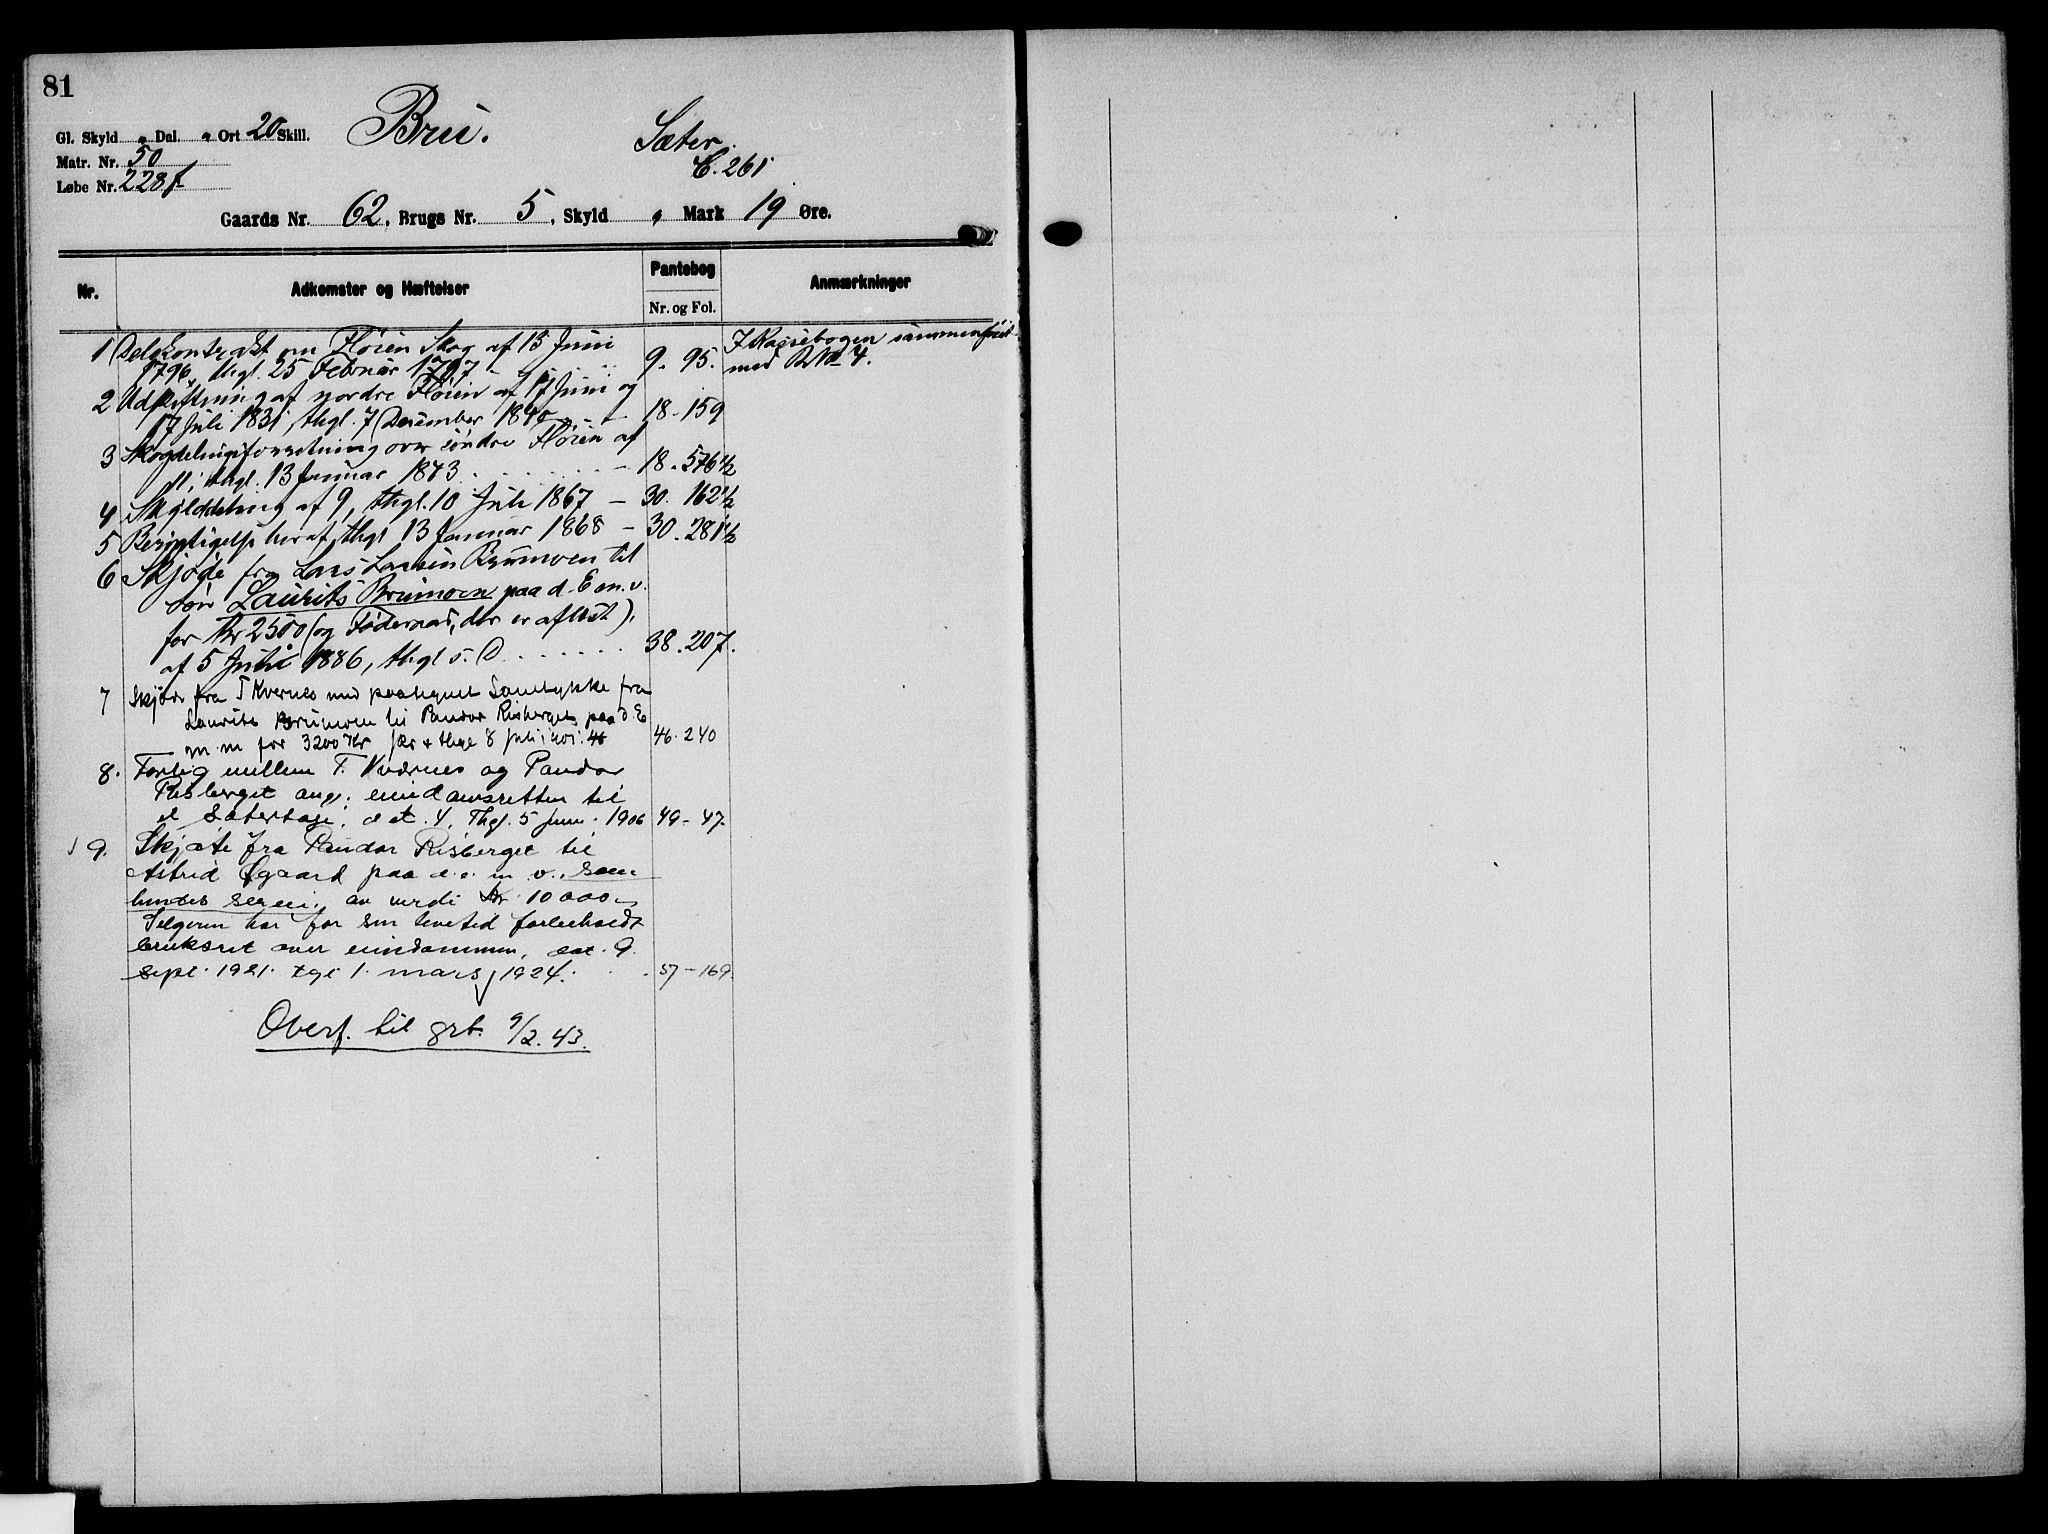 81
Gl. Skyld „ Dal. „ Ort 20 Skill. Bru. Sæter.
Matr. Nr. 50 C. 261
Løbe Nr. 228f
Gaards Nr. 62, Brugs Nr. 5, Skyld „ Mark 19 Øre.
Nr. Adkomster og Hæftelser Pantebog Nr. og Fol. Anmærkninger
1 Delekontrakt om Fløien Skog af 13 Juni
1796, thgl. 25 Februar 1797 - 9. 95. I Kassebogen sammenføiet
med B. No 4.
2 Udskiftning af nordre Fløien af 17 Juni og
17 Juli 1831, thgl. 7 December 1840 - 18 - 159
3 Skogdelingsforretning over søndre Fløien af
thgl. 13 Januar 1843 - 18. 576 1/2
4 Skylddeling af 9, thgl. 10 Juli 1867 - 30. 162 1/2
5 Berigtigelse heraf, thgl 13 Januar 1868 - 30. 281 1/2
6 Skjøde fra Lars Larsen Brumoen til
søn Laurits Brumoen paa d. E m. v.
for Kr 2500 (og Føderaad, der er aflæst),
af 5 Juli 1886, thgl s. D. 38. 207.
7 Skjøde fra T Kvernes med paategnet Samtykke fra
Laurits Brumoen til Pandor Risberget paa d. E
m. m for 3200 Kr thgl 8 juli 46. 240
8. Forlig mellem T. Kværnes og Pandor
Risberget ang. eiendomsretten til
et Sæterhage, dat. 4, Thgl. 5 Juni 1906 49 - 47.
9. Skjøte fra Pandor Risberget til
Astrid Øgaard paa d. e. m v., som
hendes særeie, av verdi Kr 10 000 -
Selgeren har for sin levetid forbeholdt
bruksret over eiendommen, dat. 9
sept. 1921. tgl 1. mars 1924. 57 - 169.
Overf. til grb. 9/2. 43.